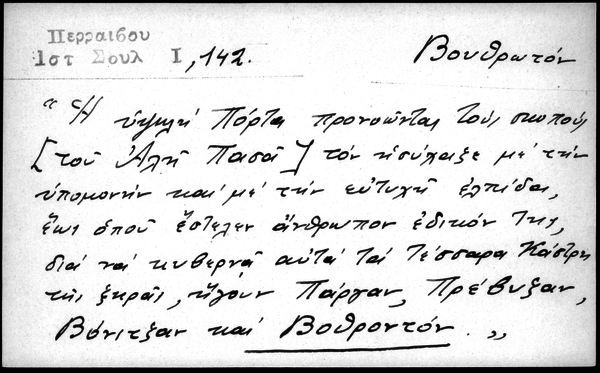 Περραιβου
1στ Σουλ I, 142.
Βουθρωτόν
"Ἡ ὑψηλή Πόρτα προνοῶντας τούς σκοπούς
[τοῦ Ἀλῆ Πασᾶ] τόν ἡσύχαξε μέ τήν
ὑπομονήν καί μέ τήν εὐτυχῆ ἐλπίδα,
ἕως ὁποῦ ἔστελεν ἄνθρωπον ἐδικόν της,
διά νά κυβερνᾶ αὐτά τά τέσσαρα Κάστρη
τῆς ξηρᾶς, ἤγουν Πάργαν, Πρέβυζαν,
Βόνιτζαν καί Βοθροντόν."